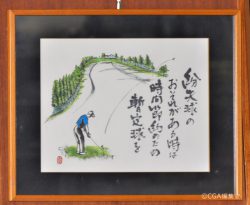 紛失球の
おそれがある時は
時間節約のため
暫定球を
©CGA編集部